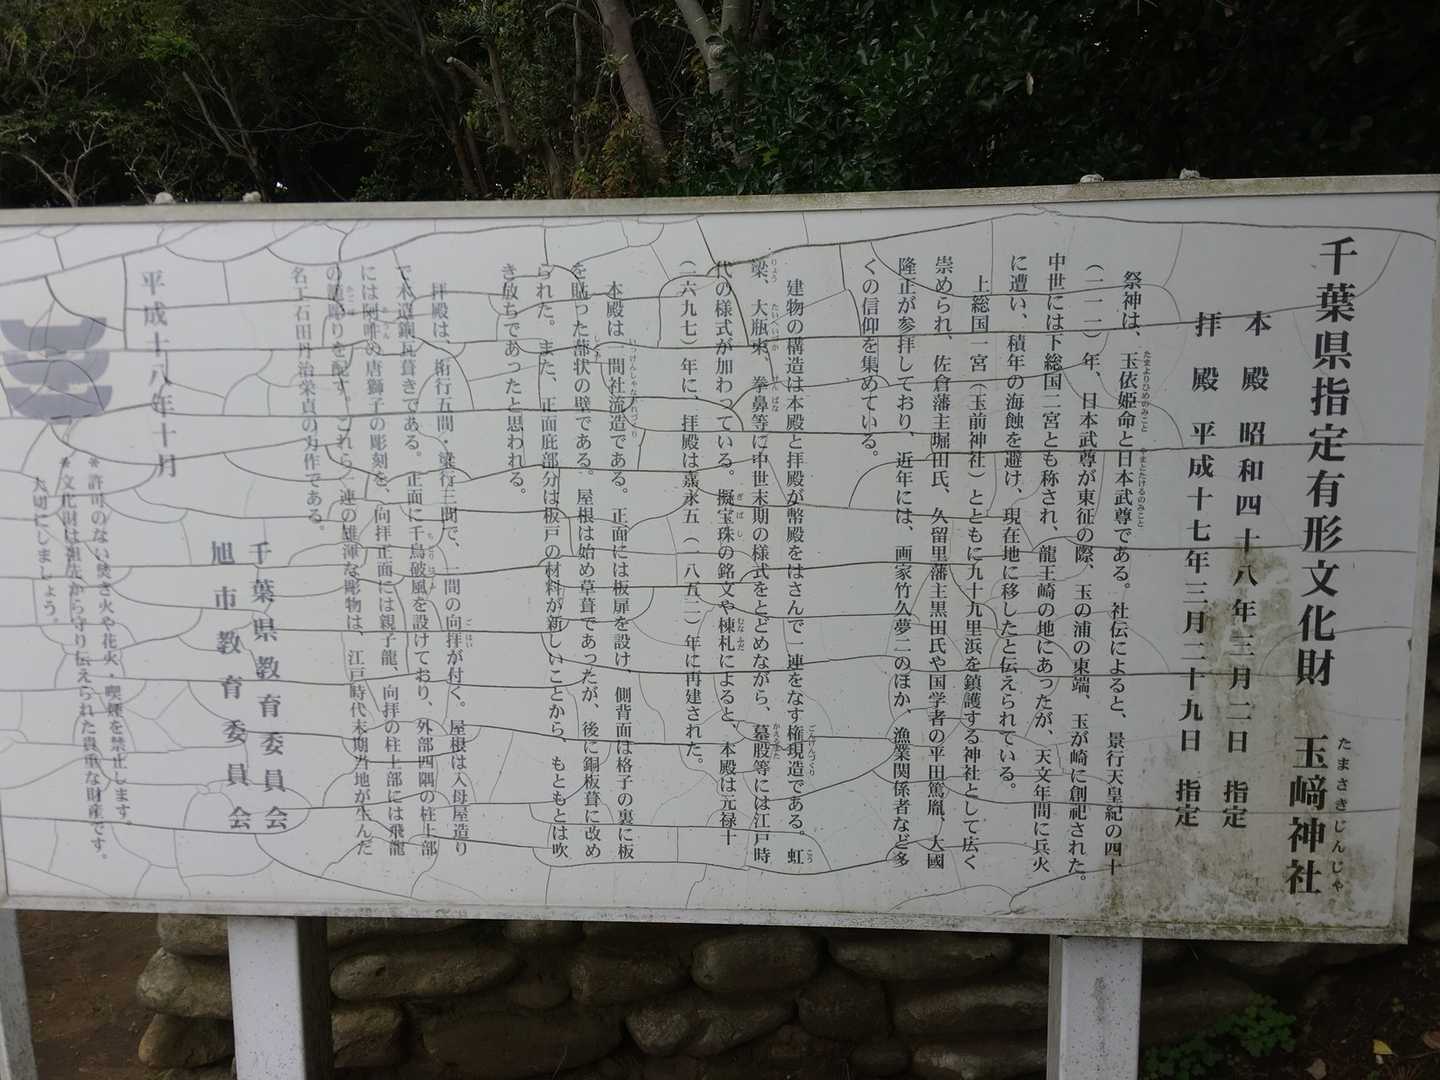 千葉県指定有形文化財　玉﨑神社
たまさきじんじゃ
本殿　昭和四十八年三月二日　指定
拝殿　平成十七年三月二十九日　指定
祭神は、玉依姫命と日本武尊である。社伝によると、景行天皇紀の四十
たまよりひめのみこと　やまとたけるのみこと
（一一一）年、日本武尊が東征の際、玉の浦の東端、玉が崎に創祀された。
中世には下総国二宮とも称され、龍王崎の地にあったが、天文年間に兵火
に遭い、積年の海蝕を避け、現在地に移したと伝えられている。
上総国一宮（玉前神社）とともに九十九里浜を鎮護する神社として広く
崇められ、佐倉藩主堀田氏、久留里藩主黒田氏や国学者の平田篤胤、大國
隆正が参拝しており、近年には、画家竹久夢二のほか、漁業関係者など多
くの信仰を集めている。
建物の構造は本殿と拝殿が幣殿をはさんで一連をなす権現造である。虹
ごんげんづくり　こう
梁、大瓶束、拳鼻等に中世末期の様式をとどめながら、蟇股等には江戸時
りょう　たいへいづか　こぶしばな　かえるまた
代の様式が加わっている。擬宝珠の銘文や棟札によると、本殿は元禄十
ぎぼし　むなふだ
（一六九七）年に、拝殿は嘉永五（一八五二）年に再建された。
本殿は一間社流造である。正面には板扉を設け、側背面は格子の裏に板
いっけんしゃながれづくり
を貼った蔀状の壁である。屋根は始め草葺であったが、後に銅板葺に改め
しとみ
られた。また、正面庇部分は板戸の材料が新しいことから、もともとは吹
き放ちであったと思われる。
拝殿は、桁行五間・梁行三間で、一間の向拝が付く。屋根は入母屋造り
ごはい
で木造銅瓦葺きである。正面に千鳥破風を設けており、外部四隅の柱上部
ちどりはふ
には阿吽の唐獅子の彫刻を、向拝正面には親子龍、向拝の柱上部には飛龍
あうん
の籠彫りを配す。これら一連の雄渾な彫物は、江戸時代末期当地が生んだ
かごぼ
名工石田丹治栄貞の刃作である。
平成十八年十月
千葉県教育委員会
旭市教育委員会
＊許可のない焚き火や花火・喫煙を禁止します。
＊文化財は祖先から守り伝えられた貴重な財産です。
大切にしましょう。